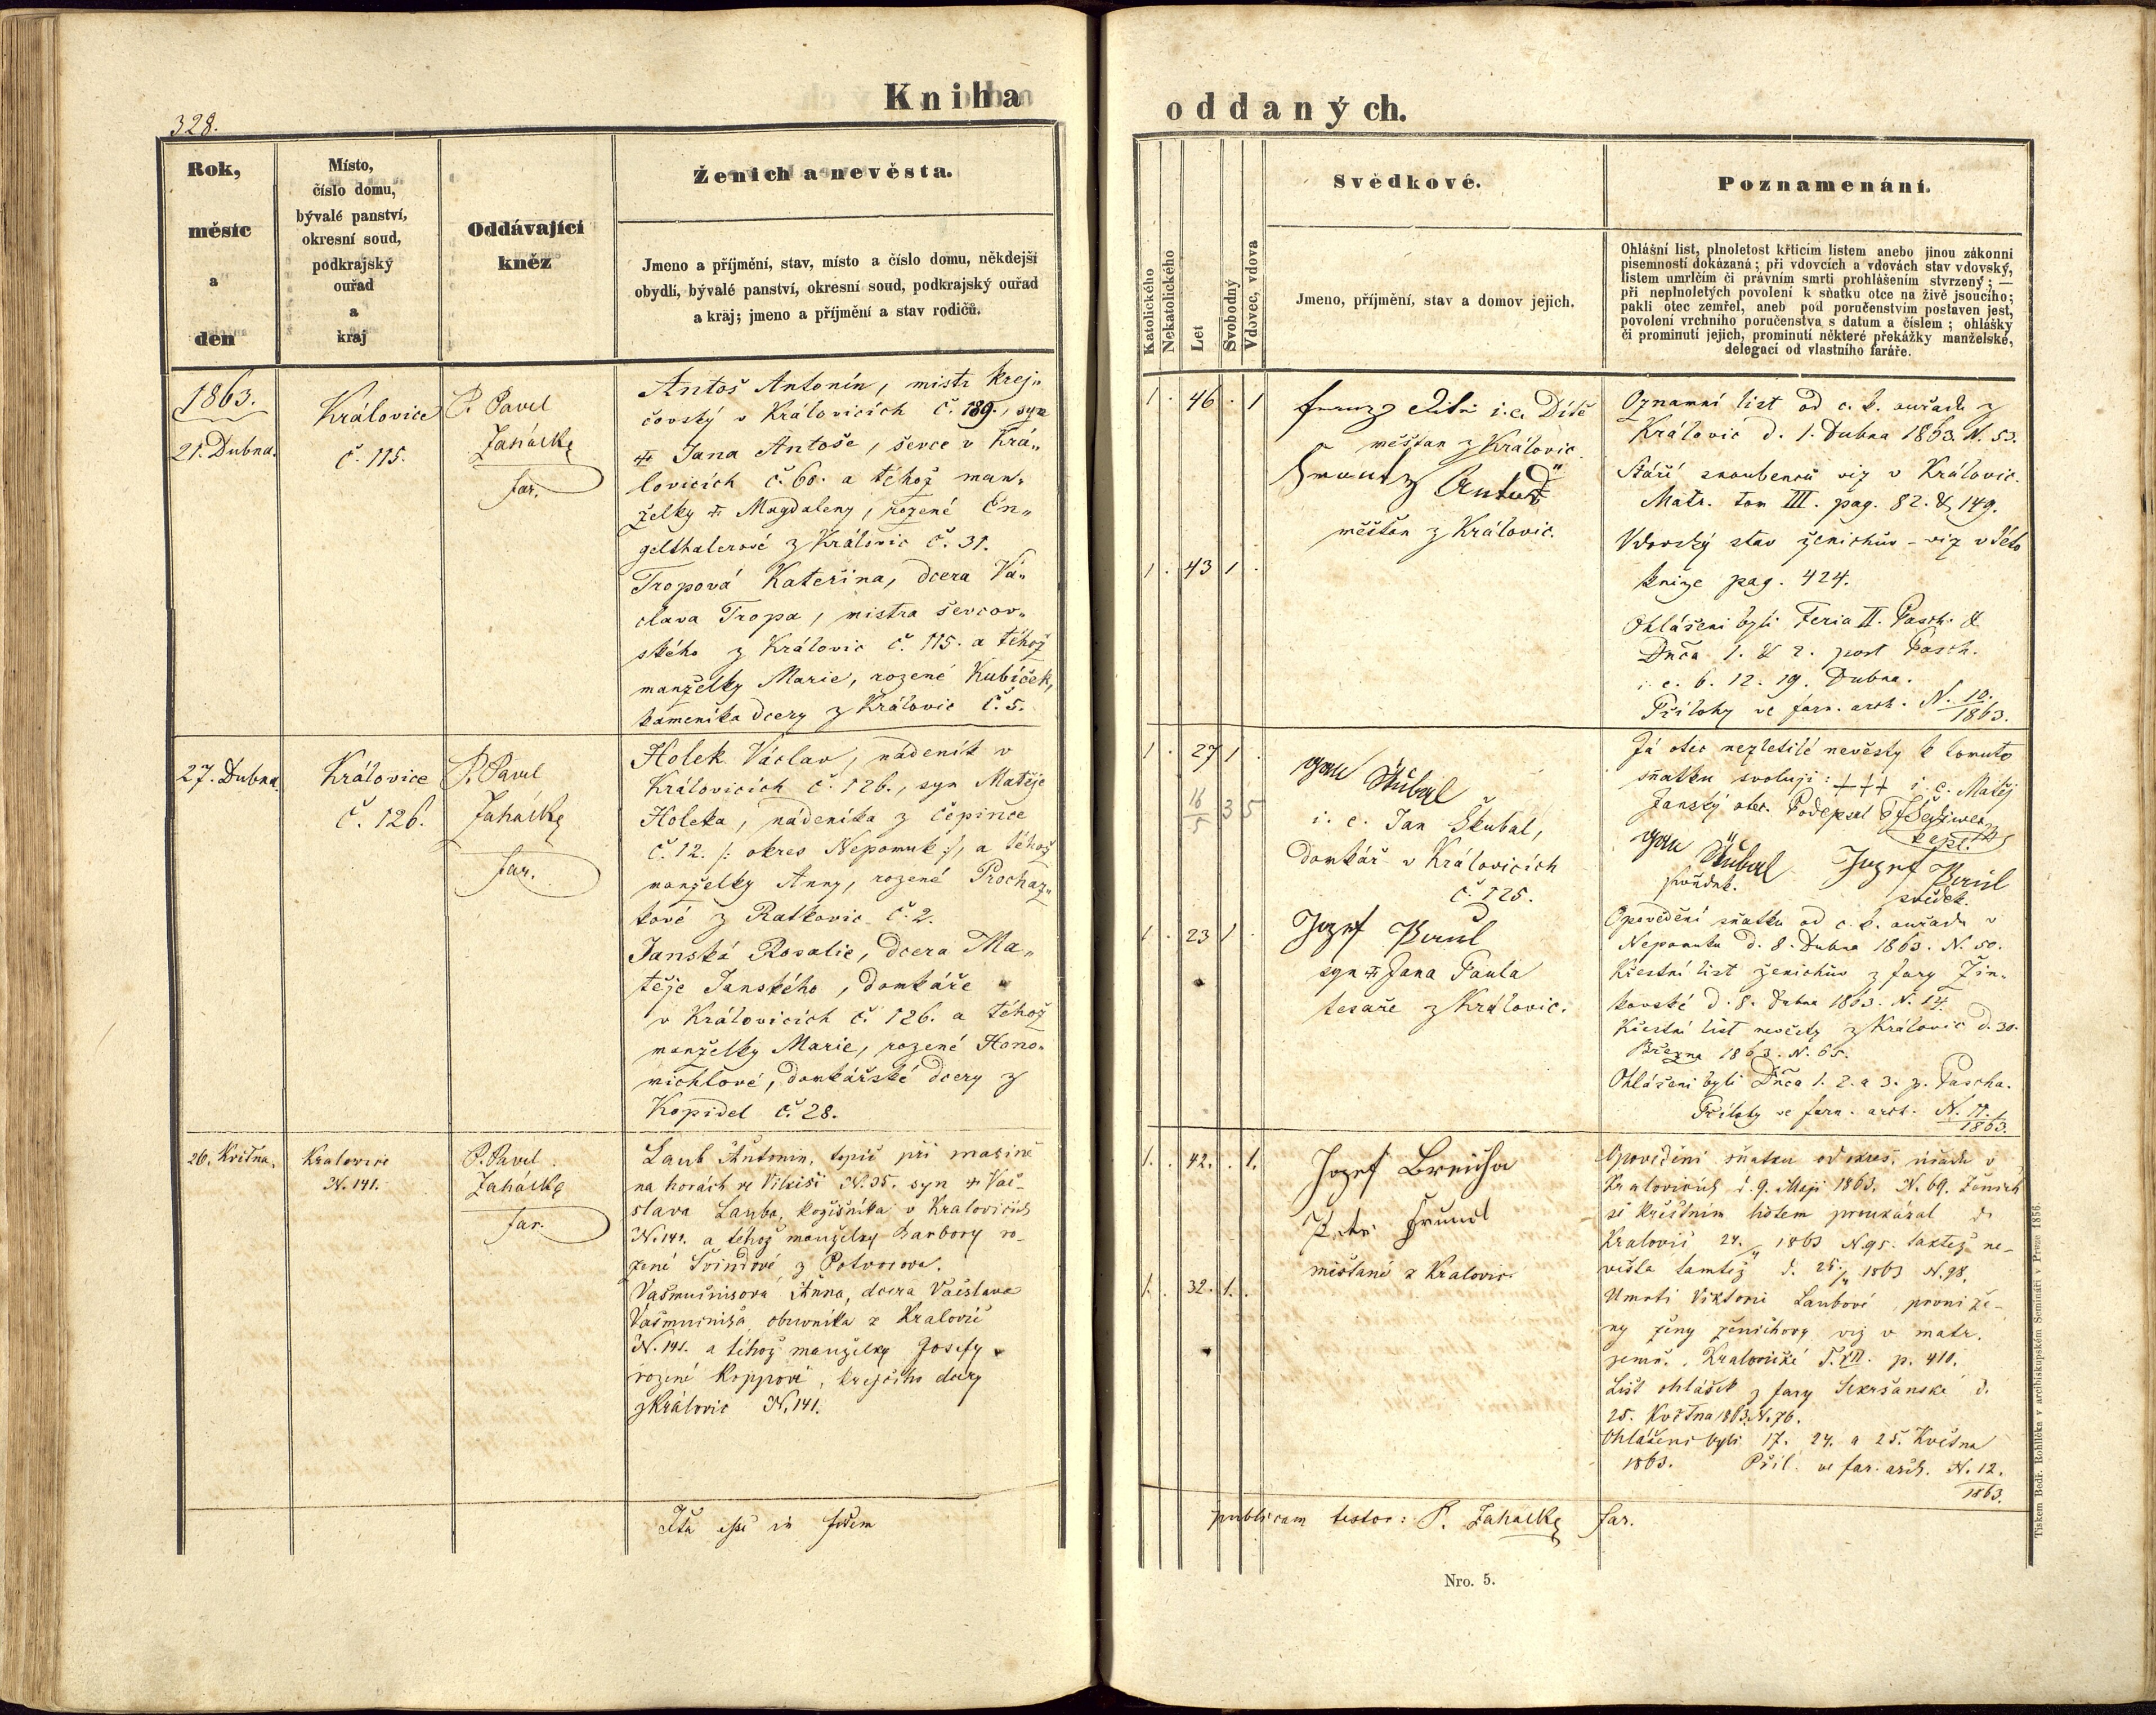 Kniha
328.
Rok,
měsíc
a
den
Místo,
číslo domu,
bývalé panství,
okresní soud,
podkrajský
ouřad
a
kraj
Oddávající
kněz
Ženich a nevěsta.
Jmeno a příjmění, stav, místo a číslo domu, někdejší
obydlí, bývalé panství, okresní soud, podkrajský ouřad
a kraj; jmeno a příjmění a stav rodičů.
1863.
21. Dubna.
Královice
č. 115.
P. Pavel
Zahálka
far.
Antoš Antonín, mistr krej„
čovský v Královicích č. 189., syn
Jana Antoše, ševce v Krá„
lovicích č. 60. a téhož man„
želky Magdaleny, rozené En„
gelthalerové z Královic č. 31.
Tropová Kateřina, dcera Vá„
clava Tropa, mistra ševcov„
ského z Královic č. 115. a téhož
manželky Marie, rozené Kubíček,
kameníka dcery z Královic č. 5.
27. Dubna
Královice
č. 126.
P. Pavel
Zahálka
far.
Holek Václav, nádeník v
Královicích č. 126., syn Matěje
Holeka, nádeníka z Čepince
č. 12. /: okres Nepomuk :/, a téhož
manželky Anny, rozené Procház„
kové z Ratkovic č. 2.
Janská Rosalie, dcera Ma„
těje Janského, domkáře
v Královicích č. 126. a téhož
manželky Marie, rozené Hono„
michlové, domkářské dcery z
Kopidel č. 28.
26. Května.
Kralovice
N. 141.
P. Pavel
Zahálka
far.
Laub Antonin, topič při mašině
na horách ve Vlkiši N. 35. syn Vác„
slava Lauba, kožišníka v Kralovicích
N. 141. a téhož manželky Barbory ro„
zené Švindové z Potvorova.
Vašmuciusova Anna, dcera Václava
obuvníka z Kralovic
N. 141. a téhož manželky Josefy
rozené Koppové, krejčího dcery
z Královic N. 141.
Ita esse in fidem
oddaných.
Katolického
Nekatolického
Let
Svobodný
Vdovec, vdova
Svědkové.
Jmeno, příjmění, stav a domov jejich.
Poznamenání.
Ohlášní list, plnoletost křticím listem anebo jinou zákonní
písemností dokázaná; při vdovcích a vdovách stav vdovský,
listem umrlčím či právním smrti prohlášením stvrzený; —
při neplnoletých povolení k sňatku otce na živě jsoucího;
pakli otec zemřel, aneb pod poručenstvím postaven jest,
povolení vrchního poručenstva s datum a číslem; ohlášky
či prominutí jejich, prominutí některé překážky manželské,
delegací od vlastního faráře.
1 . 46 . 1
Franz i. e. Dítě
měšťan z Královic.
Frantz Antosch
měšťan z Královic.
1 . 43 1 .
Oznamní list od c. k. ouřadu z
Královic d. 1. Dubna 1863. N. 53.
Stáří snoubenců viz v Královic.
Matr. tom III. pag. 82. & 149.
Vdovský stav ženichův – viz v této
knize pag. 424.
Ohlášeni byli Feria II. Pasch. &
Dnča 1. & 2. post Pasch.
i. e. 6. 12. 19. Dubna.
Přílohy ve farn. arch. N. 10./1863.
1 . 27 1 .
16/5 3 5
Jan Škubal
i. e. Jan Škubal,
domkář v Královicích
č. 125.
1 . 23 1 .
Jozef Paul
syn Jana Paula
tesaře z Královic.
Já otec nezletilé nevěsty k tomuto
sňatku svoluji: +++ i. e. Matěj
Janský otec. Podepsal
kapl.
Jan Škubal Jozef Paul
svědek. svědek.
Opovědění sňatku od c. k. ouřadu v
Nepomuku d. 8. Dubna 1863. N. 50.
Křestní list ženichův z fary Žin„
kovské d. 8. Dubna 1863. N. 14.
Křestní list nevěsty z Královic d. 30.
Března 1863. N. 65.
Ohlášeni byli Dnča 1. 2. a 3. p. Pascha.
Přílohy ve farn. arch. N. 11./1863.
1. . 42. . 1.
Jozef Breicha
Petr Gründl
měšťané z Kralovic
1. . 32. 1. .
Opovědění sňatku od okres. úřadu v
Kralovicích d. 9. Maji 1863. N. 69. Ženich
se křestním listem proukázal d.
Kralovic 24./4 1863 N. 95. taktéž ne„
věsta tamtéž d. 25./4 1863 N. 98.
Umrtí Viktorie Laubové, první že„
ny ženy ženichovy viz v matr.
zemř. Kralovické T. VII. p. 410.
List ohlášek z fary d.
25. Května 1863. N. 76.
Ohlášeni byli 17. 24. a 25. Května
1863. Příl. ve far. arch. N. 12./1863.
publicam testor: P. Zahálka far.
Nro. 5.
Tiskem Bedř. Rohlíčka v arcibiskupském Seminári v Praze 1856.